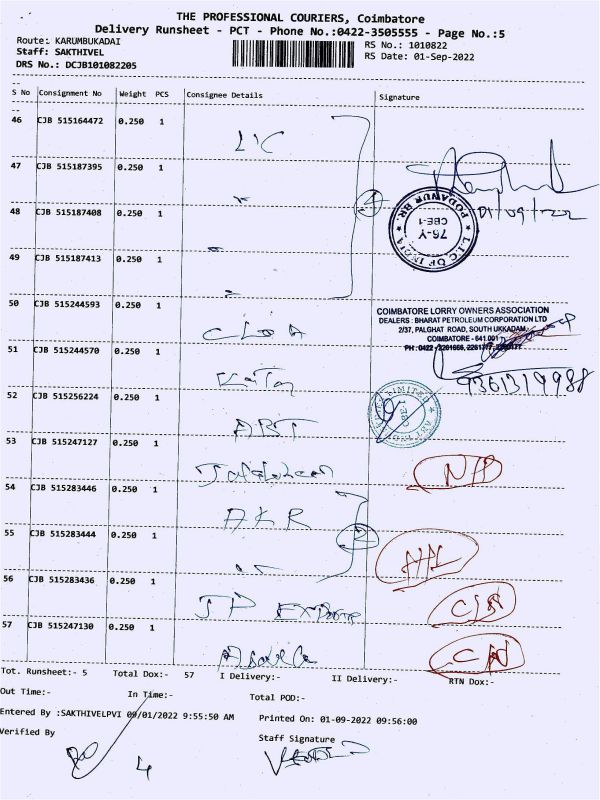 THE PROFESSIONAL COURIERS, Coimbatore
Delivery Runsheet - PCT - Phone No.:0422-3505555 - Page No.:5
Route: KARUMBUKADAI RS No.: 1010822
Staff: SAKTHIVEL RS Date: 01-Sep-2022
DRS No.: DCJB101082205
S No Consignment No Weight PCS Consignee Details Signature
46 CJB 515164472 0.250 1
LIC
47 CJB 515187395 0.250 1
4
48 CJB 515187408 0.250 1
L.I.C OF INDIA PODANUR BR. 76-Y CBE-1
01/09/2022
49 CJB 515187413 0.250 1
50 CJB 515244593 0.250 1
CLOA
COIMBATORE LORRY OWNERS ASSOCIATION
DEALERS : BHARAT PETROLEUM CORPORATION LTD
2/37, PALGHAT ROAD, SOUTH UKKADAM
COIMBATORE - 641.001
51 CJB 515244570 0.250 1
52 CJB 515256224 0.250 1
ART
53 CJB 515247127 0.250 1
54 CJB 515283446 0.250 1
AKR
2
55 CJB 515283444 0.250 1
56 CJB 515283436 0.250 1
JP Exports
57 CJB 515247130 0.250 1
Tot. Runsheet:- 5 Total Dox:- 57 I Delivery:- II Delivery:- RTN Dox:-
Out Time:- In Time:- Total POD:-
Entered By :SAKTHIVELPVI 09/01/2022 9:55:50 AM Printed On: 01-09-2022 09:56:00
Verified By Staff Signature
4